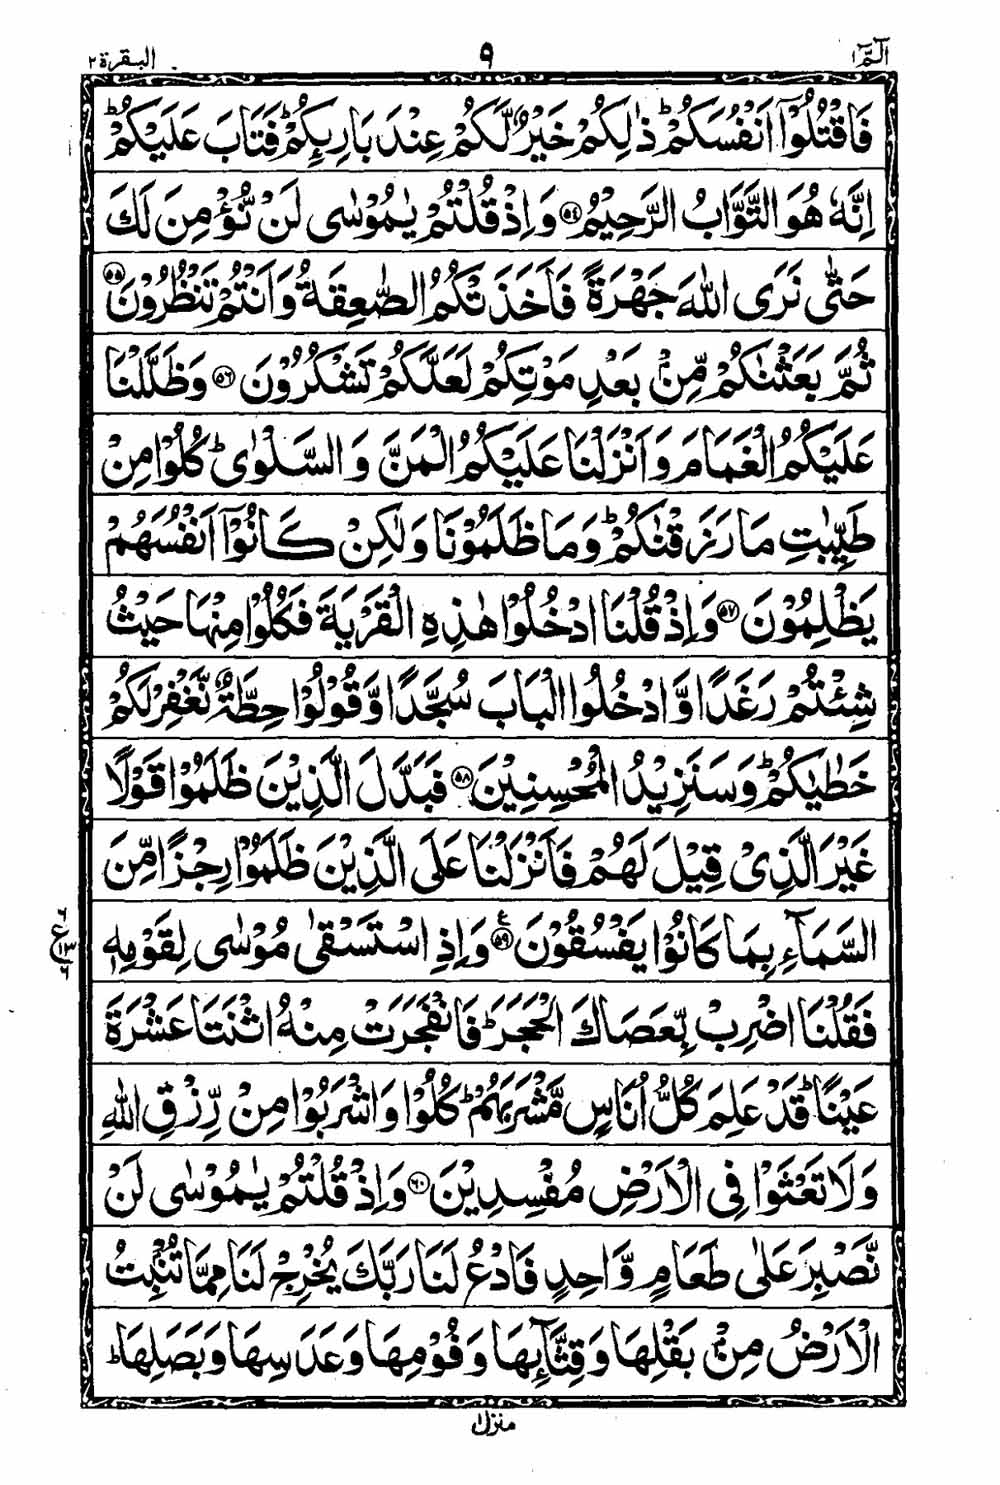 الٓمّٓ ١ ٩ البقرة ٢
فَاقْتُلُوْٓا اَنْفُسَكُمْ ؕ ذٰلِكُمْ خَيْرٌ لَّكُمْ عِنْدَ بَارِىِٕكُمْ ؕ فَتَابَ عَلَيْكُمْ ؕ
اِنَّهٗ هُوَ التَّوَّابُ الرَّحِيْمُ ﴿٥٤﴾ وَاِذْ قُلْتُمْ يٰمُوْسٰى لَنْ نُّؤْمِنَ لَكَ
حَتّٰى نَرَى اللّٰهَ جَهْرَةً فَاَخَذَتْكُمُ الصّٰعِقَةُ وَاَنْتُمْ تَنْظُرُوْنَ ﴿٥٥﴾
ثُمَّ بَعَثْنٰكُمْ مِّنْۢ بَعْدِ مَوْتِكُمْ لَعَلَّكُمْ تَشْكُرُوْنَ ﴿٥٦﴾ وَظَلَّلْنَا
عَلَيْكُمُ الْغَمَامَ وَاَنْزَلْنَا عَلَيْكُمُ الْمَنَّ وَالسَّلْوٰى ؕ كُلُوْا مِنْ
طَيِّبٰتِ مَا رَزَقْنٰكُمْ ؕ وَمَا ظَلَمُوْنَا وَلٰكِنْ كَانُوْٓا اَنْفُسَهُمْ
يَظْلِمُوْنَ ﴿٥٧﴾ وَاِذْ قُلْنَا ادْخُلُوْا هٰذِهِ الْقَرْيَةَ فَكُلُوْا مِنْهَا حَيْثُ
شِئْتُمْ رَغَدًا وَّادْخُلُوا الْبَابَ سُجَّدًا وَّقُوْلُوْا حِطَّةٌ نَّغْفِرْ لَكُمْ
خَطٰيٰكُمْ ؕ وَسَنَزِيْدُ الْمُحْسِنِيْنَ ﴿٥٨﴾ فَبَدَّلَ الَّذِيْنَ ظَلَمُوْا قَوْلًا
غَيْرَ الَّذِىْ قِيْلَ لَهُمْ فَاَنْزَلْنَا عَلَى الَّذِيْنَ ظَلَمُوْا رِجْزًا مِّنَ
السَّمَآءِ بِمَا كَانُوْا يَفْسُقُوْنَ ﴿٥٩﴾ ع وَاِذِ اسْتَسْقٰى مُوْسٰى لِقَوْمِهٖ
٦ ع ١٣ ٦
فَقُلْنَا اضْرِبْ بِّعَصَاكَ الْحَجَرَ ؕ فَانْفَجَرَتْ مِنْهُ اثْنَتَا عَشْرَةَ
عَيْنًا ؕ قَدْ عَلِمَ كُلُّ اُنَاسٍ مَّشْرَبَهُمْ ؕ كُلُوْا وَاشْرَبُوْا مِنْ رِّزْقِ اللّٰهِ
وَلَا تَعْثَوْا فِى الْاَرْضِ مُفْسِدِيْنَ ﴿٦٠﴾ وَاِذْ قُلْتُمْ يٰمُوْسٰى لَنْ
نَّصْبِرَ عَلٰى طَعَامٍ وَّاحِدٍ فَادْعُ لَنَا رَبَّكَ يُخْرِجْ لَنَا مِمَّا تُنْۢبِتُ
الْاَرْضُ مِنْۢ بَقْلِهَا وَقِثَّآىِٕهَا وَفُوْمِهَا وَعَدَسِهَا وَبَصَلِهَا ؕ
منزل ١